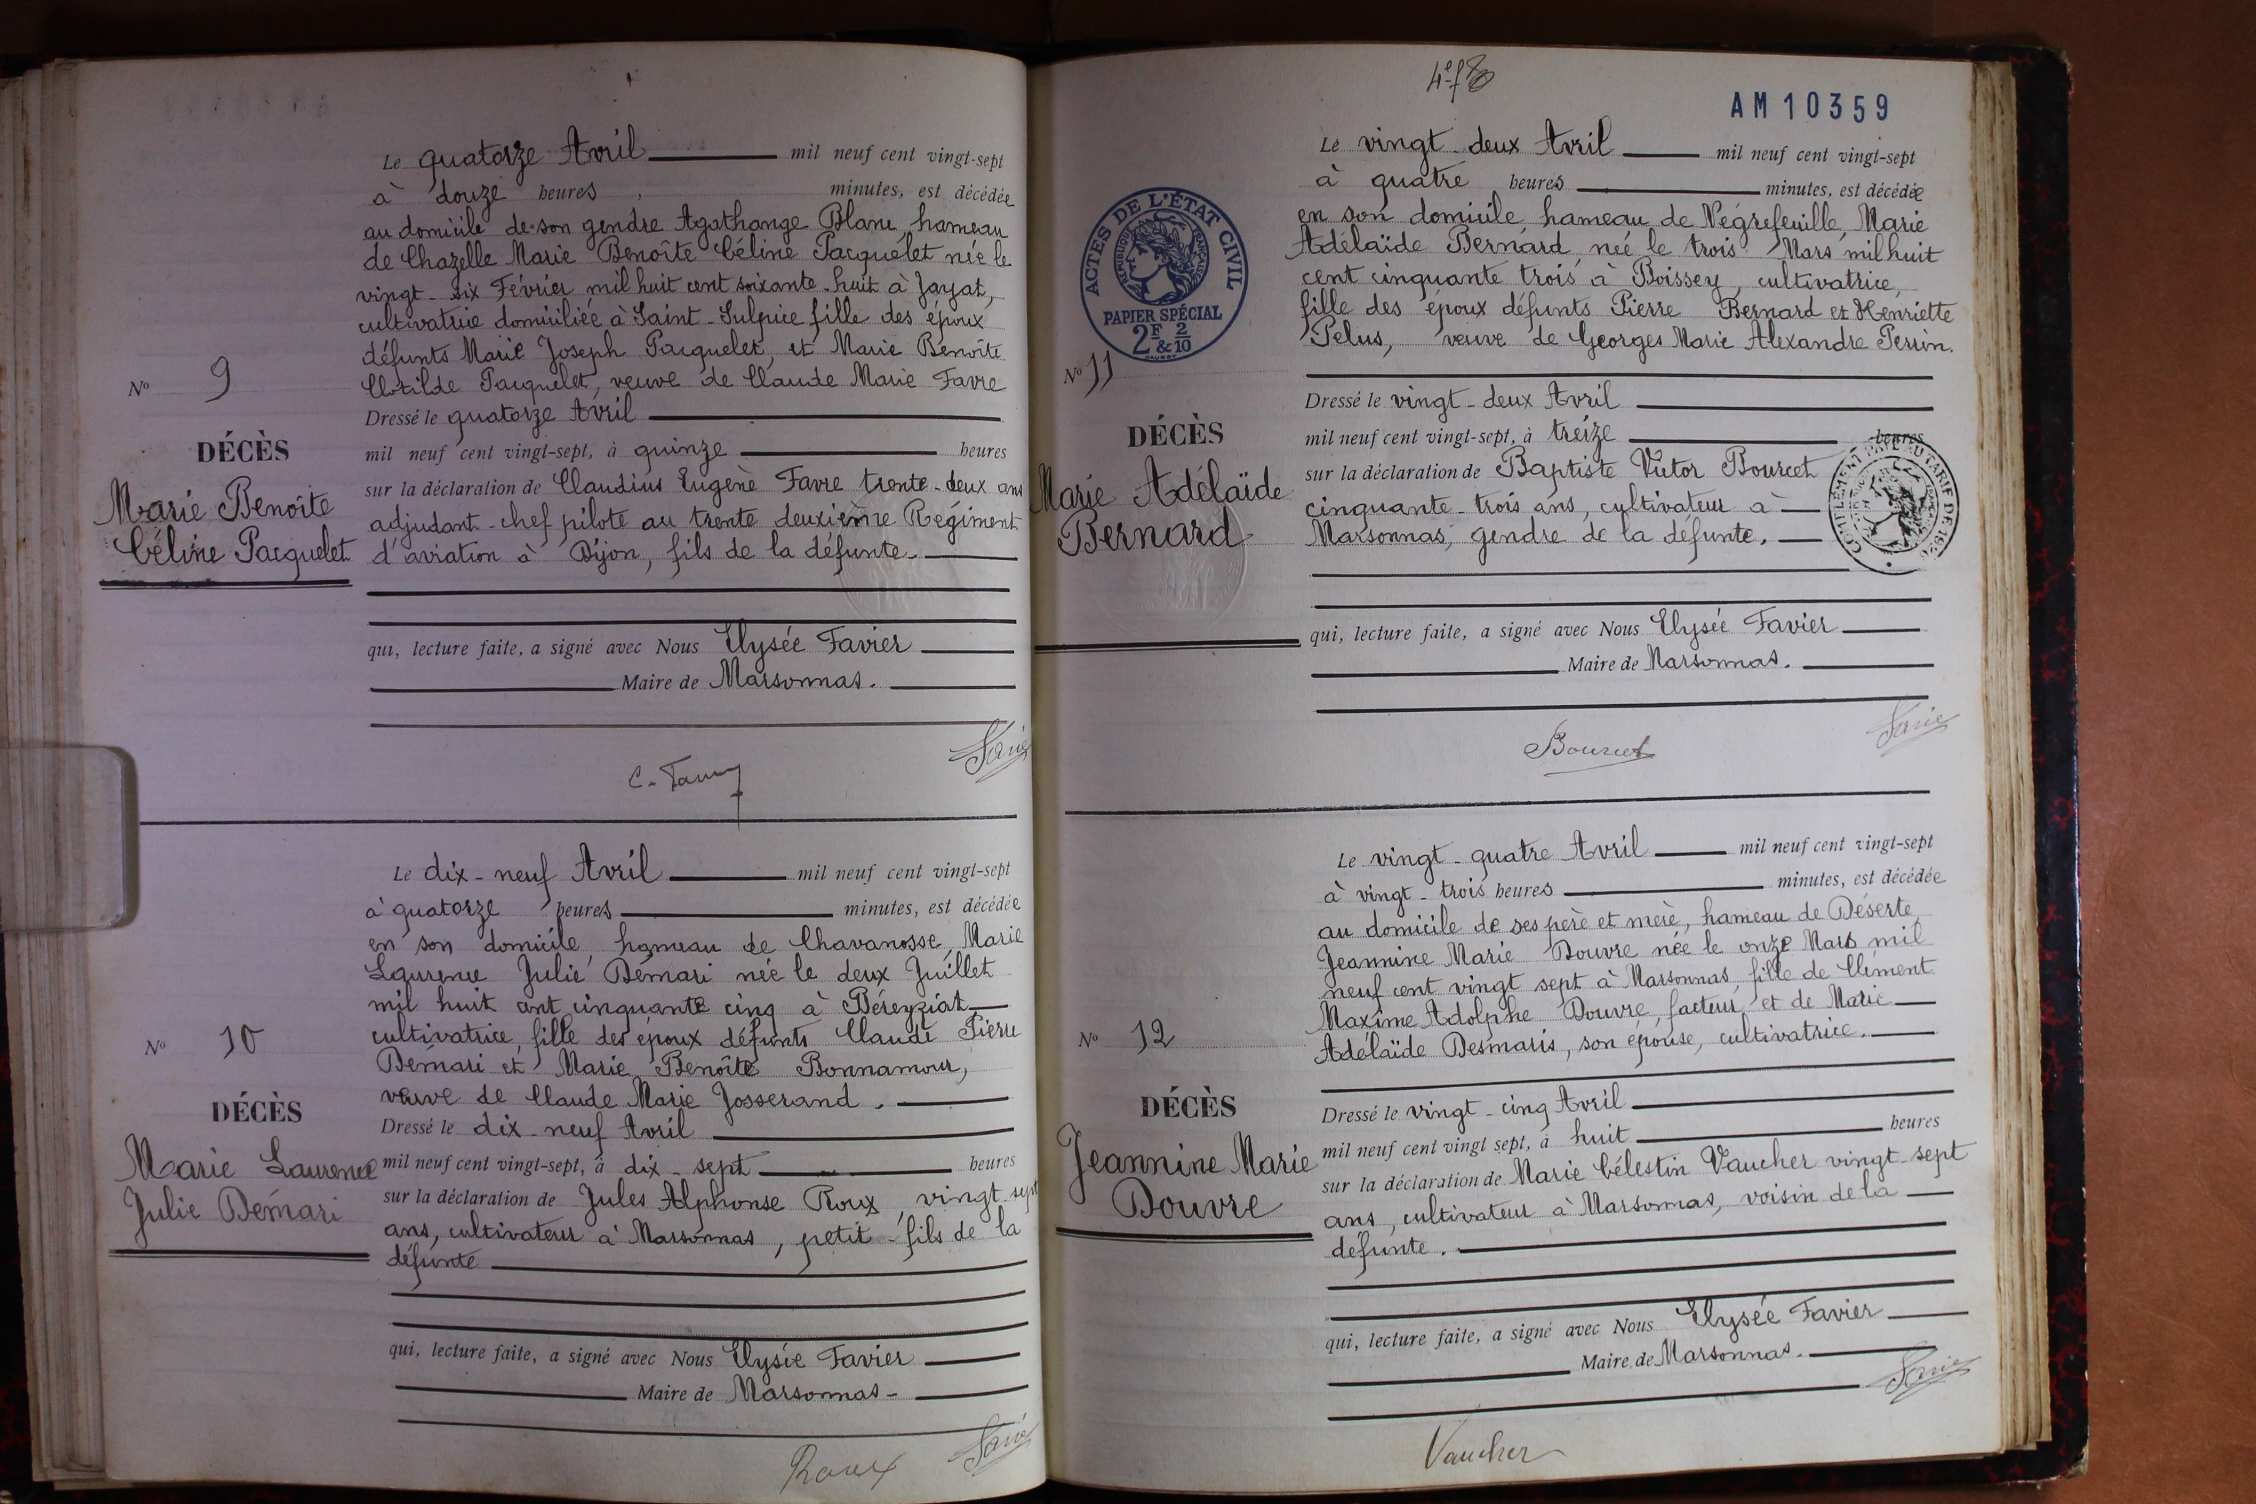 Le quatorze Avril mil neuf cent vingt-sept
à douze heures minutes, est décédée
au domicile de son gendre Agathange Blanc, hameau
de Chazelle Marie Benoîte Céline Pacquelet née le
vingt-six Février mil huit cent soixante-huit à Jayat,
cultivatrice domiciliée à Saint-Sulpice fille des époux
défunts Marie Joseph Pacquelet, et Marie Benoîte
Clotilde Pacquelet, veuve de Claude Marie Favre
Nº 9
Dressé le quatorze Avril
DÉCÈS
mil neuf cent vingt-sept, à quinze heures
Marie Benoîte
Céline Pacquelet
sur la déclaration de Claudius Eugène Favre trente-deux ans
adjudant-chef pilote au trente deuxième Régiment
d'aviation à Dijon, fils de la défunte.
qui, lecture faite, a signé avec Nous Elysée Favier
Maire de Marsonnas.
Le dix-neuf Avril mil neuf cent vingt-sept
à quatorze heures minutes, est décédée
en son domicile, hameau de Chavanosse, Marie
Laurence Julie Démari née le deux Juillet
mil huit cent cinquante cinq à Béreyziat
cultivatrice, fille des époux défunts Claude Pierre
Démari et Marie Benoîte Bonnamour,
veuve de Claude Marie Josserand.
Nº 10
DÉCÈS
Marie Laurence
Julie Démari
Dressé le dix-neuf Avril
mil neuf cent vingt-sept, à dix-sept heures
sur la déclaration de Jules Alphonse Roux, vingt-sept
ans, cultivateur à Marsonnas, petit-fils de la
défunte
qui, lecture faite, a signé avec Nous Elysée Favier
Maire de Marsonnas-
Roux
AM 10359
Le vingt-deux Avril mil neuf cent vingt-sept
à quatre heures minutes, est décédée
en son domicile, hameau de Négrefeuille, Marie
Adélaïde Bernard née le trois Mars mil huit
cent cinquante trois à Boissey, cultivatrice,
fille des époux défunts Pierre Bernard et Henriette
Pelus, veuve de Georges Marie Alexandre Perrin.
ACTES DE L'ÉTAT CIVIL
RÉPUBLIQUE FRANÇAISE
PAPIER SPÉCIAL
2F & 2/10
Nº 11
DÉCÈS
Marie Adélaïde
Bernard
Dressé le vingt-deux Avril
mil neuf cent vingt-sept, à treize heures
sur la déclaration de Baptiste Victor Bourcet
cinquante-trois ans, cultivateur à
Marsonnas, gendre de la défunte.
COMPLÉMENT PAYÉ AU TARIF DE 1926
qui, lecture faite, a signé avec Nous Elysée Favier
Maire de Marsonnas.
Bourcet
Le vingt-quatre Avril mil neuf cent vingt-sept
à vingt-trois heures minutes, est décédée
au domicile de ses père et mère, hameau de Déserte,
Jeannine Marie Douvre née le onze Mars mil
neuf cent vingt sept à Marsonnas, fille de Clément
Maxime Adolphe Douvre, facteur, et de Marie
Adélaïde Desmaris, son épouse, cultivatrice.
Nº 12
DÉCÈS
Jeannine Marie
Douvre
Dressé le vingt-cinq Avril
mil neuf cent vingt sept, à huit heures
sur la déclaration de Marie Célestin Vaucher vingt-sept
ans, cultivateur à Marsonnas, voisin de la
défunte.
qui, lecture faite, a signé avec Nous Elysée Favier
Maire de Marsonnas.
Vaucher